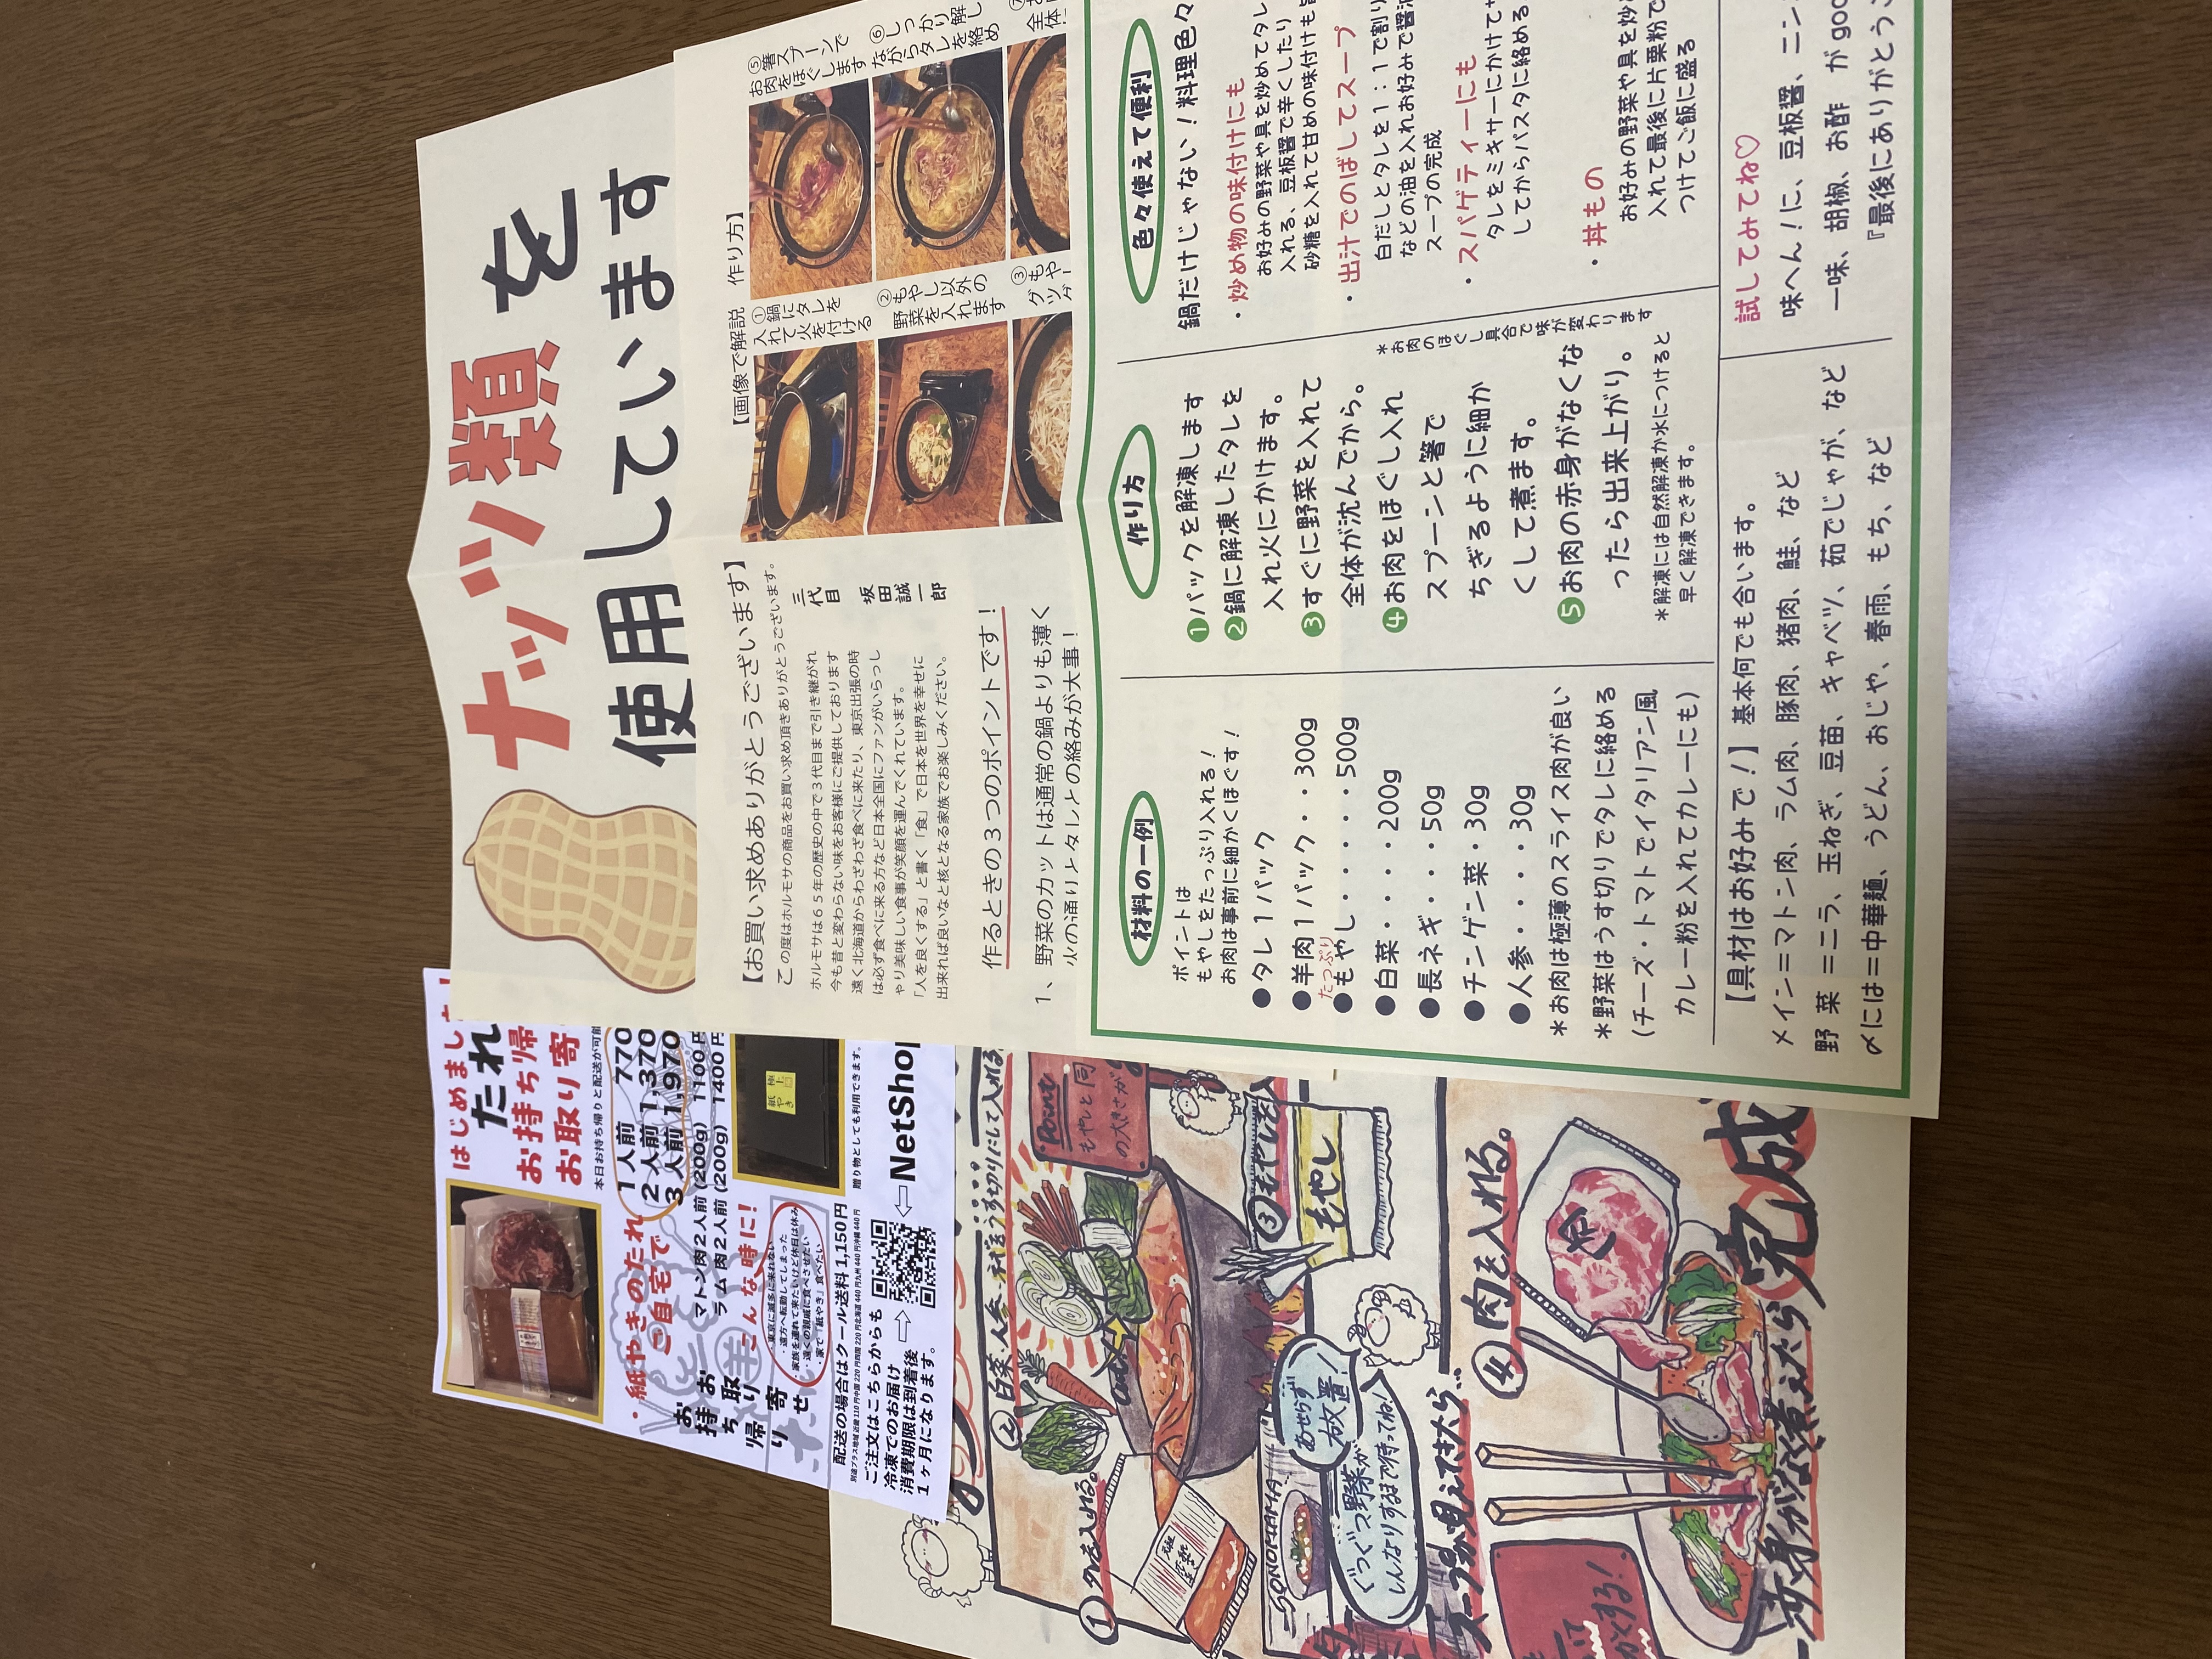 ナッツ類を
使用しています
【お買い求めありがとうございます】
この度はホルモサの商品をお買い求め頂きありがとうございます。
ホルモサは65年の歴史の中で3代目まで引き継がれ
今も昔と変わらない味をお客様にご提供しております
遠く北海道からわざわざ食べに来たり、東京出張の時
は必ず食べに来る方など日本全国にファンがいらっし
ゃり美味しい食事が笑顔を運んでくれています。
「人を良くする」と書く「食」で日本を世界を幸せに
出来れば良いなと核となる家族でお楽しみください。
三代目 坂田誠一郎
作るときの3つのポイントです！
1、野菜のカットは通常の鍋よりも薄く
火の通りとタレとの絡みが大事！
【画像で解説 作り方】
①鍋にタレを
入れて火を付ける
②もやし以外の
野菜を入れます
③もや
⑤箸スプーンで
お肉をほぐします
⑥しっかり解し
ながらタレを絡め
⑦
全体
材料の一例
ポイントは
もやしをたっぷり入れる！
お肉は事前に細かくほぐす！
●タレ1パック
●羊肉1パック・・300g
たっぷり
●もやし・・・・・500g
●白菜・・・・200g
●長ネギ・・・50g
●チンゲン菜・30g
●人参・・・・30g
＊お肉は極薄のスライス肉が良い
＊野菜はうす切りでタレに絡める
(チーズ・トマトでイタリアン風
カレー粉を入れてカレーにも)
作り方
❶パックを解凍します
❷鍋に解凍したタレを
入れ火にかけます。
❸すぐに野菜を入れて
全体が沈んでから。
❹お肉をほぐし入れ
スプーンと箸で
ちぎるように細か
くして煮ます。
❺お肉の赤身がなくな
ったら出来上がり。
＊お肉のほぐし具合で味が変わります
＊解凍には自然解凍か水につけると
早く解凍できます。
色々使えて便利
鍋だけじゃない！料理色々
・炒め物の味付けにも
お好みの野菜や具を炒めてタレ
入れる、豆板醤で辛くしたり
砂糖を入れて甘めの味付けも
・出汁でのばしてスープ
白だしとタレを1：1で割り
などの油を入れお好みで醤
スープの完成
・スパゲティーにも
タレをミキサーにかけて
してからパスタに絡める
・丼もの
お好みの野菜や具を炒
入れて最後に片栗粉で
つけてご飯に盛る
【具材はお好みで！】基本何でも合います。
メイン＝マトン肉、ラム肉、豚肉、猪肉、鮭、など
野 菜 ＝ニラ、玉ねぎ、豆苗、キャベツ、茹でじゃが、など
〆には＝中華麺、うどん、おじや、春雨、もち、など
試してみてね♡
味へん！に、豆板醤、ニン
一味、胡椒、お酢 が goo
『最後にありがとう
はじめまし
たれ
お持ち帰
お取り寄
本日お持ち帰りと配送が可能
・紙やきのたれ
ご自宅で
1人前 770
2人前 1,370
3人前 1,970
お持ち帰り
お取り寄せ
マトン肉2人前 (200g) 1100円
ラム 肉2人前 (200g) 1400円
こんな時に！
・東京に滅多に来れない
・遠方へ転勤してしまった
・家族を連れて来たいけど休日は休み
・遠くの親戚に食べさせたい
・家で「紙やき」食べたい
極上
紙やき
贈り物としても利用できます。
配送の場合はクール送料1,150円
ご注文はこちらからも
冷凍でのお届け
消費期限は到着後
1ヶ月になります。
NetShop
①タレを入れる。
②白菜・人参・ネギをうす切りにして入れる
Point
もやしと同
の大きさが
③もやしを入
もやし
SONOMAMA
あせらず
放置！
ぐつぐつ野菜が
しんなりするまで待っててね！
スープが見えてきたら…
④肉を入れる。
赤身がなく煮えたら完成